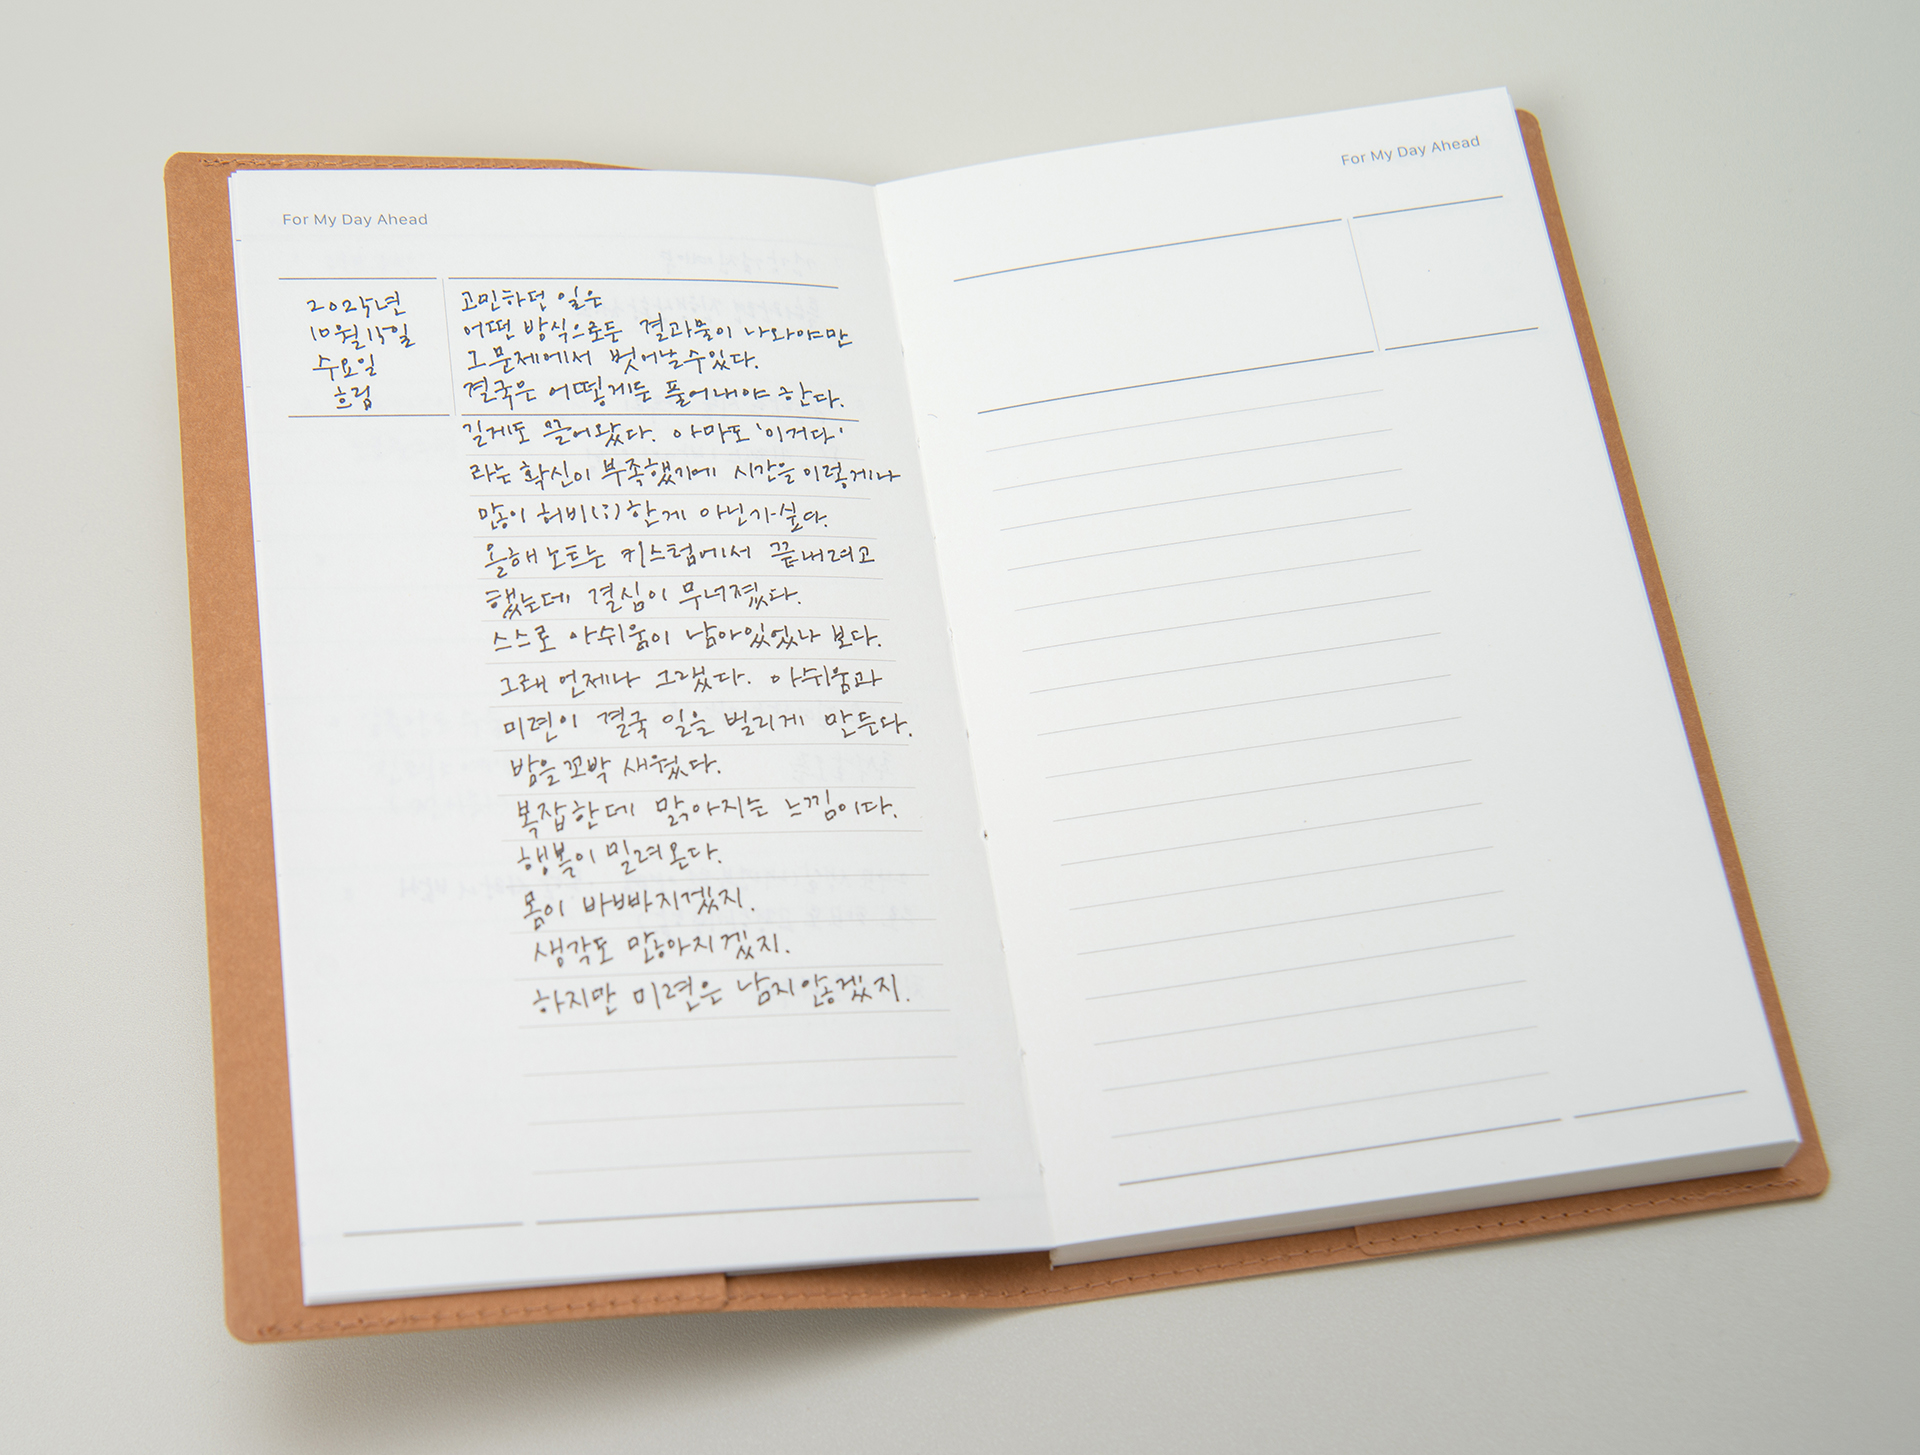 For My Day Ahead
2025년
10월 15일
수요일
흐림
고민하던 일은
어떤 방식으로든 결과물이 나와야만
그 문제에서 벗어날 수 있다.
결국은 어떻게든 풀어내야 한다.
길게도 끌어왔다. 아마도 '이거다'
라는 확신이 부족했기에 시간을 이렇게나
많이 허비(?)한게 아닌가 싶다.
올해 노트는 키스텝에서 끝내려고
했는데 결심이 무너졌다.
스스로 아쉬움이 남아있었나 보다.
그래 언제나 그랬다. 아쉬움과
미련이 결국 일을 벌리게 만든다.
밤을 꼬박 새웠다.
복잡한데 맑아지는 느낌이다.
행복이 밀려온다.
몸이 바빠지겠지.
생각도 많아지겠지.
하지만 미련은 남지 않겠지.
For My Day Ahead